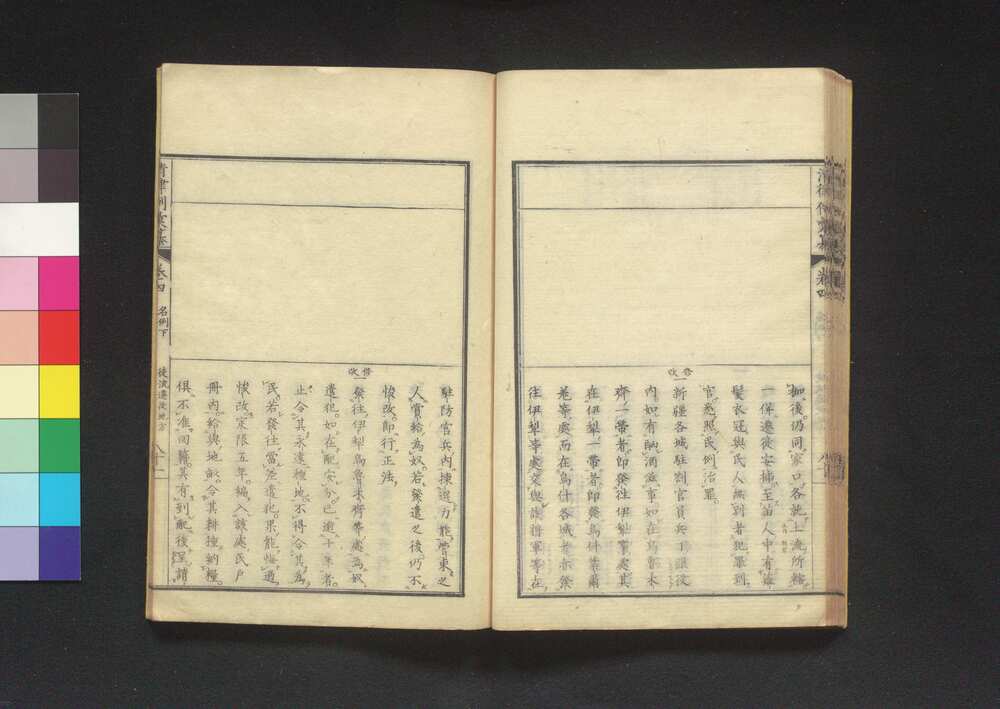 枷後仍同家口各就土流所轄
一併遷徙安插至苗人中有薙
髮衣冠與民人無別者犯罪到
官悉照民例治罪
修改
一新疆各城駐劄官員兵丁跟役
內如有酗酒滋事如在烏魯木
齊一帶者即發往伊犁等處其
在伊犁一帶者即發烏什葉爾
羌等處而在烏什各城者亦發
往伊犁等處交與該將軍等在
卷四
駐防官兵內揀選力能管束之
人賞給為奴若發遣之後仍不
悛改即行正法
修改
一發往伊犁烏魯木齊等處為奴
遣犯如在配安分已逾十年者
止令其永遠種地不得令其為
民若發往當差遣犯果能悔過
悛改定限五年編入該處民戶
冊內給與地畝令其耕種納糧
俱不准回籍其有到配後呈請
清律例彙纂
卷四 名例下
徒流遷徙地方